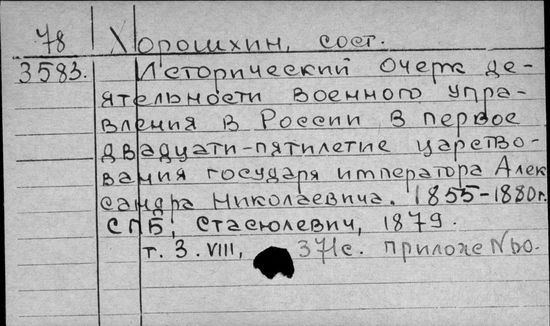 78 Хорошхин, сост.
3583. Исторический очерк де-
ятельности военного упра-
вления в России в первое
двадцати-пятилетие царство-
вания государя императора Алек
сандра Николаевича. 1855-1880г.
СПБ, Стасюлевич, 1879.
т. 3. VIII, 371с. приложе